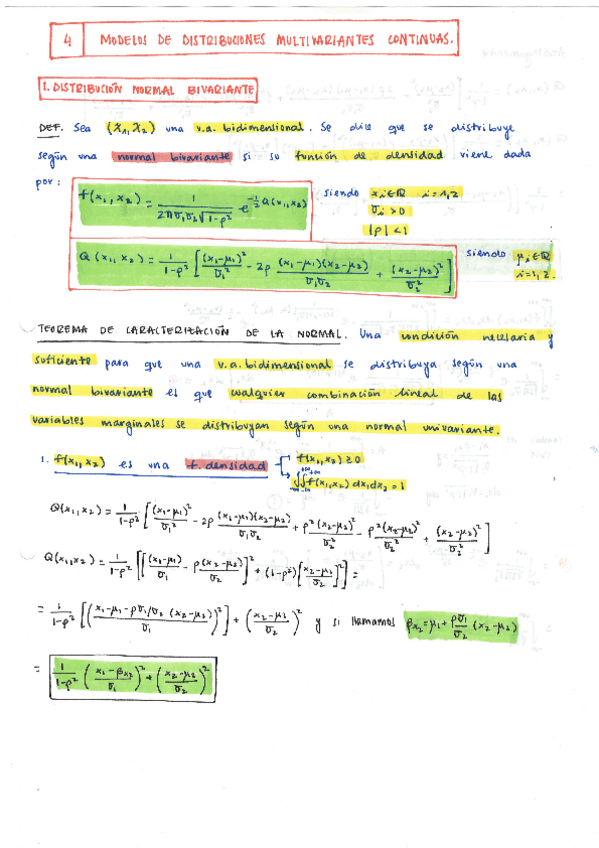 4 MODELOS DE DISTRIBUCIONES MULTIVARIANTES CONTINUAS.
1. DISTRIBUCIÓN NORMAL BIVARIANTE
DEF. Sea (X₁, X₂) una v.a. bidimensional. Se dice que se distribuye
según una normal bivariante si su función de densidad viene dada
por:
f(x₁, x₂) = 1/(2πσ₁σ₂√(1-ρ²)) e^(-1/2 Q(x₁, x₂)) siendo xᵢ ∈ ℝ i=1,2
σᵢ > 0
|ρ| < 1
Q(x₁, x₂) = 1/(1-ρ²) [(x₁-μ₁)²/σ₁² - 2ρ (x₁-μ₁)(x₂-μ₂)/(σ₁σ₂) + (x₂-μ₂)²/σ₂²] siendo μᵢ ∈ ℝ
i=1,2.
TEOREMA DE CARACTERIZACIÓN DE LA NORMAL. Una condición necesaria y
suficiente para que una v.a. bidimensional se distribuya según una
normal bivariante es que cualquier combinación lineal de las
variables marginales se distribuyan según una normal univariante.
1. f(x₁, x₂) es una f. densidad f(x₁, x₂) ≥ 0
∫∫ f(x₁, x₂) dx₁dx₂ = 1
Q(x₁, x₂) = 1/(1-ρ²) [(x₁-μ₁)²/σ₁² - 2ρ (x₁-μ₁)(x₂-μ₂)/(σ₁σ₂) + ρ²(x₂-μ₂)²/σ₂² - ρ²(x₂-μ₂)²/σ₂² + (x₂-μ₂)²/σ₂²]
Q(x₁, x₂) = 1/(1-ρ²) [[(x₁-μ₁)/σ₁ - ρ(x₂-μ₂)/σ₂]² + (1-ρ²)[(x₂-μ₂)/σ₂]²] =
= 1/(1-ρ²) [((x₁-μ₁-ρσ₁/σ₂ (x₂-μ₂))/σ₁)²] + ((x₂-μ₂)/σ₂)² y si llamamos βx₂ = μ₁ + ρσ₁/σ₂ (x₂-μ₂)
= 1/(1-ρ²) ((x₁-βx₂)/σ₁)² + ((x₂-μ₂)/σ₂)²